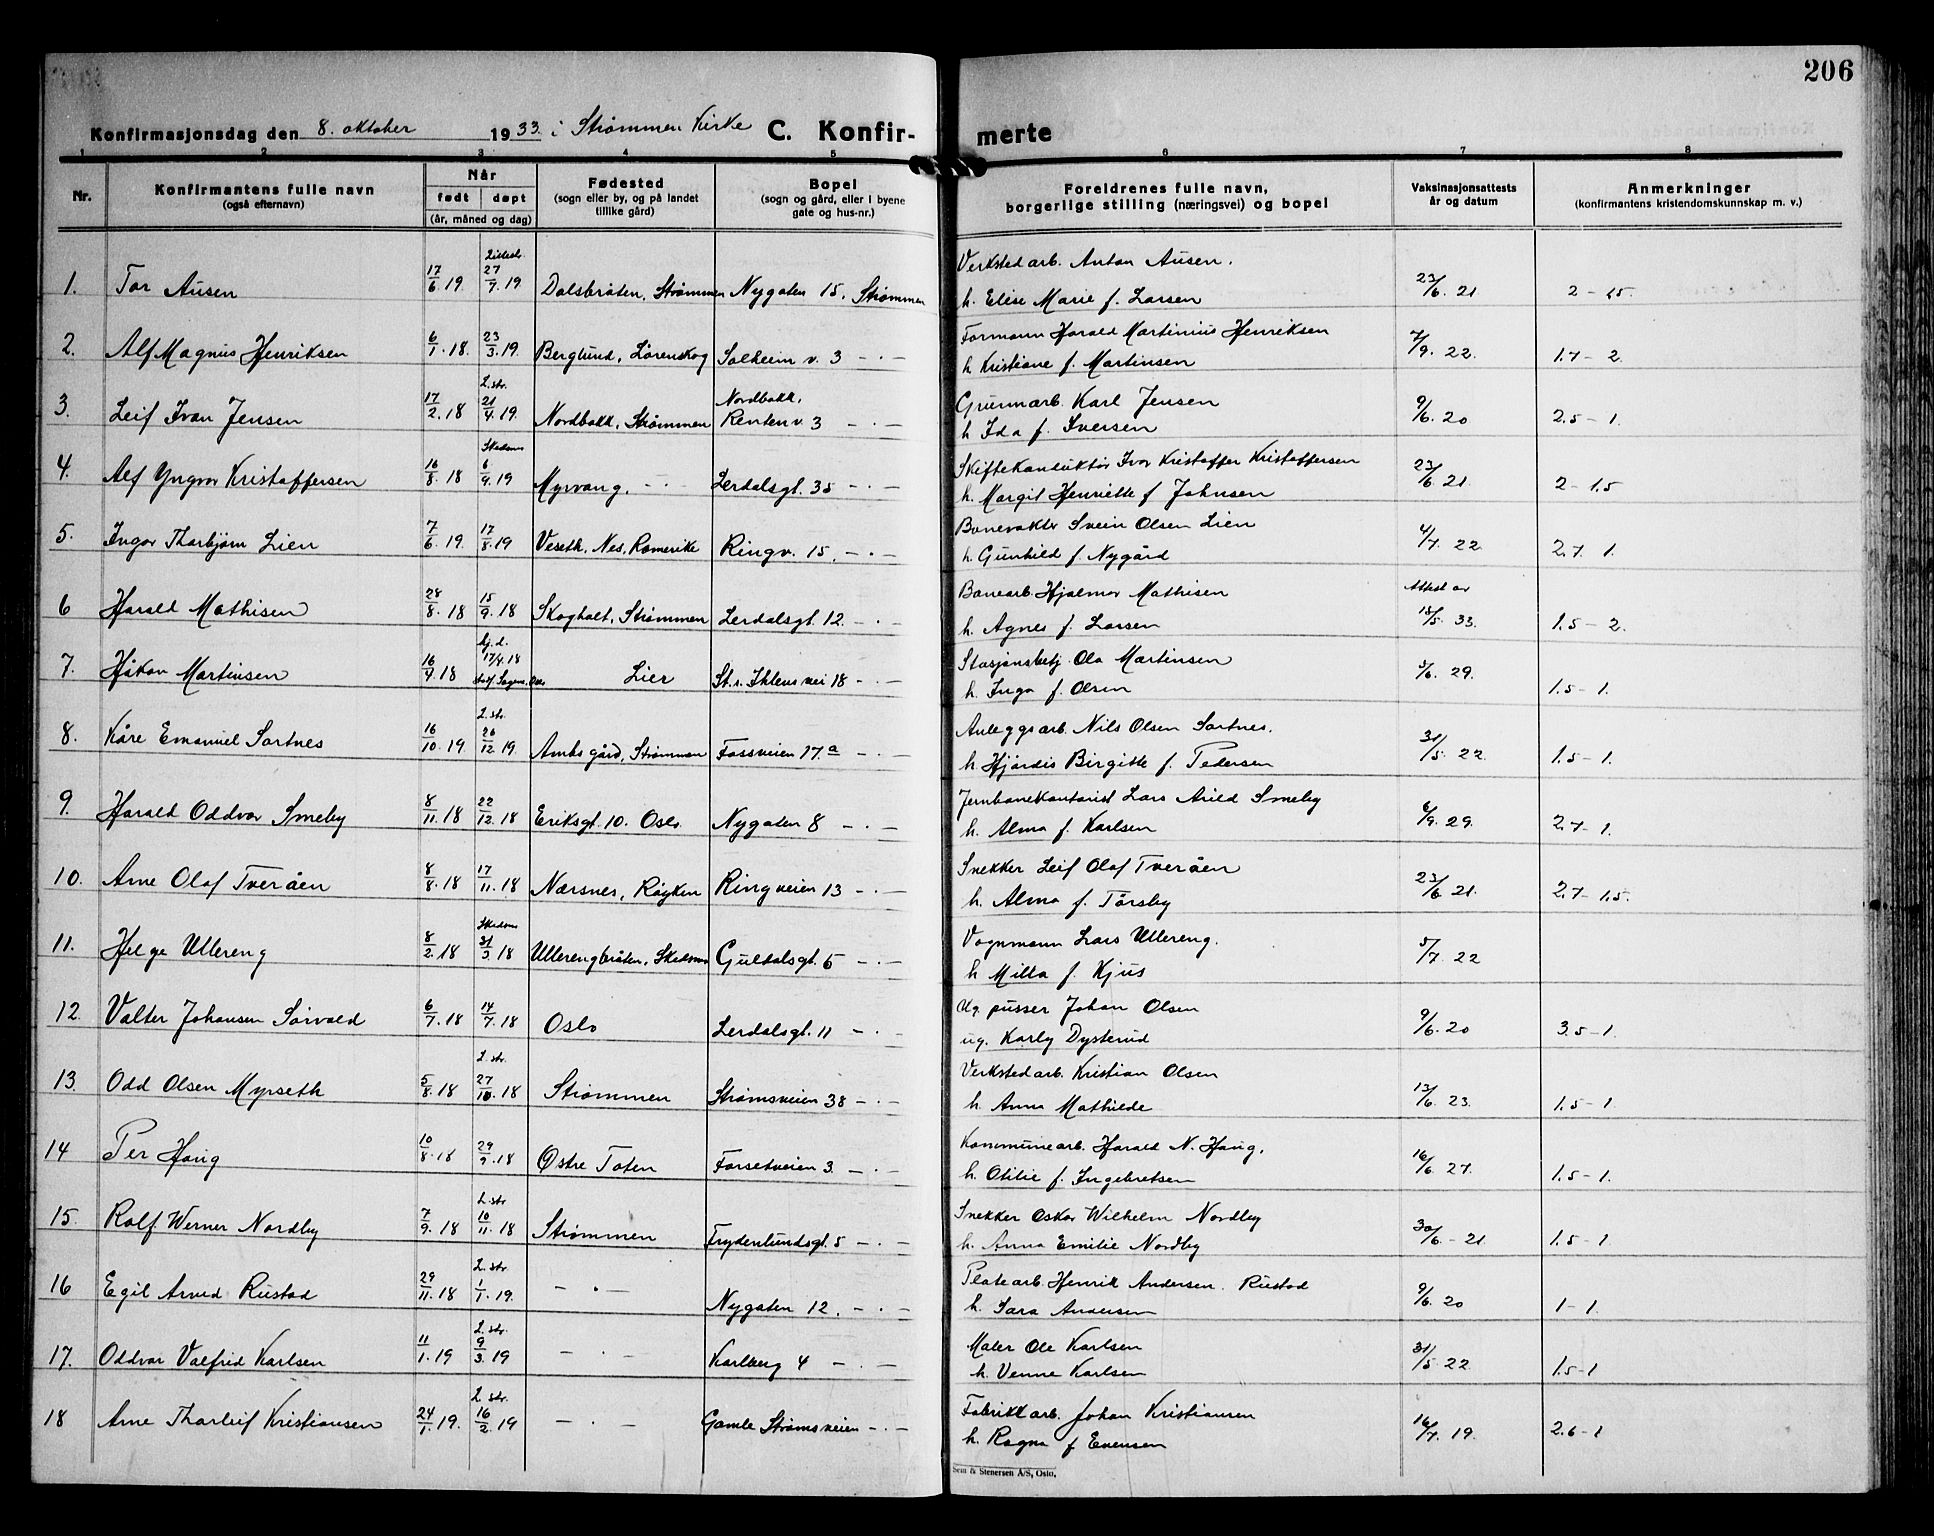 206
Konfirmasjonsdag den 8. oktober 1933. i Strømmen Kirke C. Konfir- merte
1 2 3 4 5 6 7 8
Nr. Konfirmantens fulle navn (også efternavn) Når født døpt (år, måned og dag) Fødested (sogn eller by, og på landet tillike gård) Bopel (sogn og gård, eller i byene gate og hus-nr.) Foreldrenes fulle navn, borgerlige stilling (næringsvei) og bopel Vaksinasjonsattests år og datum Anmerkninger (konfirmantens kristendomskunnskap m. v.)
Verksted arb. Anton Ausen.
1. Tor Ausen 17/6.19. 27/7.19 Dalsbråten, Strømmen Nygaten 15. Strømmen 23/6.21 2 - 1.5.
h. Elise Marie f. Larsen
Formann Harald Martinius Henriksen
2. Alf Magnus Henriksen 6/1.18. 23/3.19. Berglund, Lørenskog Solheim v. 3 - · - 7/9.22. 1.7 - 2.
h Kristiane f. Martinsen
L. str. Nordbakk.
3. Leif Ivan Jensen 17/2.18 21/4.19. Nordbakk, Strømmen Renten v. 3 - · - Grunnarb. Karl Jensen 9/6.20 2.5 - 1.
h Ida f. Iversen
Skedsmo
4. Alf Yngvar Kristoffersen 16/8.18 6/4.19 Myrvang. - · - Lerdalsgt. 35 - · - Skiftekonduktør Ivar Kristoffer Kristoffersen 23/6 21. 2 - 1.5
h. Margit Henriette f Johnsen
5. Ingar Thorbjørn Lien 7/6.19. 17/8.19 Veseth, Nes, Romerike Ringv. 15. - · - Banevakter Svein Olsen Lien 4/7. 22. 2.7. 1.
h. Gunhild f. Nygård
6 Harald Mathisen 28/8.18 15/9.18 Skogholt, Strømmen Lerdalsgt. 12. - · - Banearb. Hjalmar Mathisen Attest av 18/5. 33. 1.5 - 2.
h. Agnes f. Larsen
hj. d. 17/4.18
7. Håkon Martinsen 16/4.18 Lier St. s. Ihlens vei 18 - · - Stasjonsbetj. Ola Martinsen 5/6. 29. 1.5 - 1.
h. Inga f. Olsen
L. str.
8. Kåre Emanuel Sartnes 16/10.19. 26/12.19. Ambs gård, Strømmen Fossveien 17.a - · - Anleggsarb. Nils Olsen Sartnes. 31/5. 22. 1.5 - 1.
h. Hjørdis Birgitte f. Pedersen
9. Harald Oddvar Smeby 8/11.18 22/12.18 Eriksgt. 10. Oslo Nygaten 8 - · - Jernbanekontorist Lars Arild Smeby 6/9. 29. 2.7 - 1.
h. Alma f. Karlsen
10. Arne Olaf Tveråen 8/8.18 17/11.18 Nærsnes, Røyken Ringveien 13 - · - Snekker Leif Olaf Tveråen 23/6 21. 2.7 - 1.5.
h. Alma f. Torsby
Skedsmo
11. Helge Ullereng 8/2.18 31/3.18 Ullerengbråten, Skedsmo Guldalsgt. 5 - · - Vognmann Lars Ullereng. 5/7. 22
h Milla f. Kjus
12. Valter Johansen Sørvald 6/7.18 14/7.18 Oslo Lerdalsgt. 11 - · - Ug. pusser Johan Olsen 9/6.20 3.5 - 1.
ug. Karly Dysterud
L. str.
13. Odd Olsen Myrseth 5/8.18 27/10.18 Strømmen Strømsveien 38 - · - Verksted arb. Kristian Olsen 13/6. 23. 1.5 - 1.
h. Anna Mathilde
14 Per Haug 10/8.18 29/9.18 Østre Toten Forsetveien 3. - · - Kommunearb. Harald N. Haug. 16/6. 27. 1.5 - 1.
h. Otilie f. Ingebretsen
L. str
15. Rolf Werner Nordby 7/9.18 10/11.18 Strømmen Frydenlundsgt. 5 - · - Snekker Oskar Wilhelm Nordby 30/6 - 21. 1.5 - 1
h. Anna Emilie Nordby
L. str
16 Egil Arved Rustad 29/11.18 1/1.19. - · - Nygaten 12. - · - Platearb. Henrik Andersen. Rustad 9/6. 20 1 - 1.
h. Sara Andersen
L. str.
17. Oddvar Valfrid Karlsen 11/1.19 9/3.19 - · - Karlberg 4 - · - Maler Ole Karlsen 31/5 22 1.5 - 1
h. Venne Karlsen
L. str.
18 Arne Thorleif Kristiansen 24/1.19. 16/2.19 - · - Gamle Strømsveien - · - Fabrikkarb. Johan Kristiansen 16/7. 19. 2.6 - 1
h. Ragna f Evensen
Sem & Stenersen A/S, Oslo.